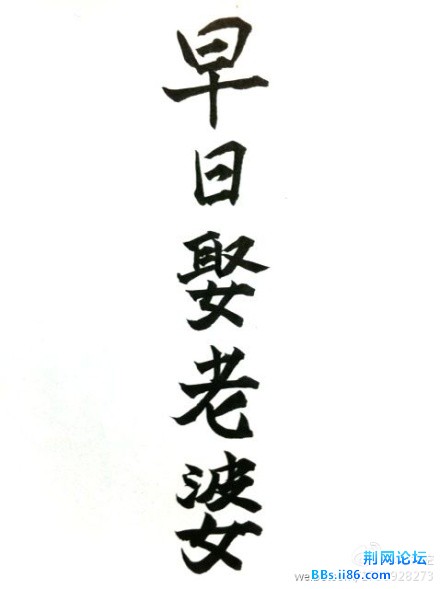 早日娶老婆
荆网论坛
BBs.ii86.com